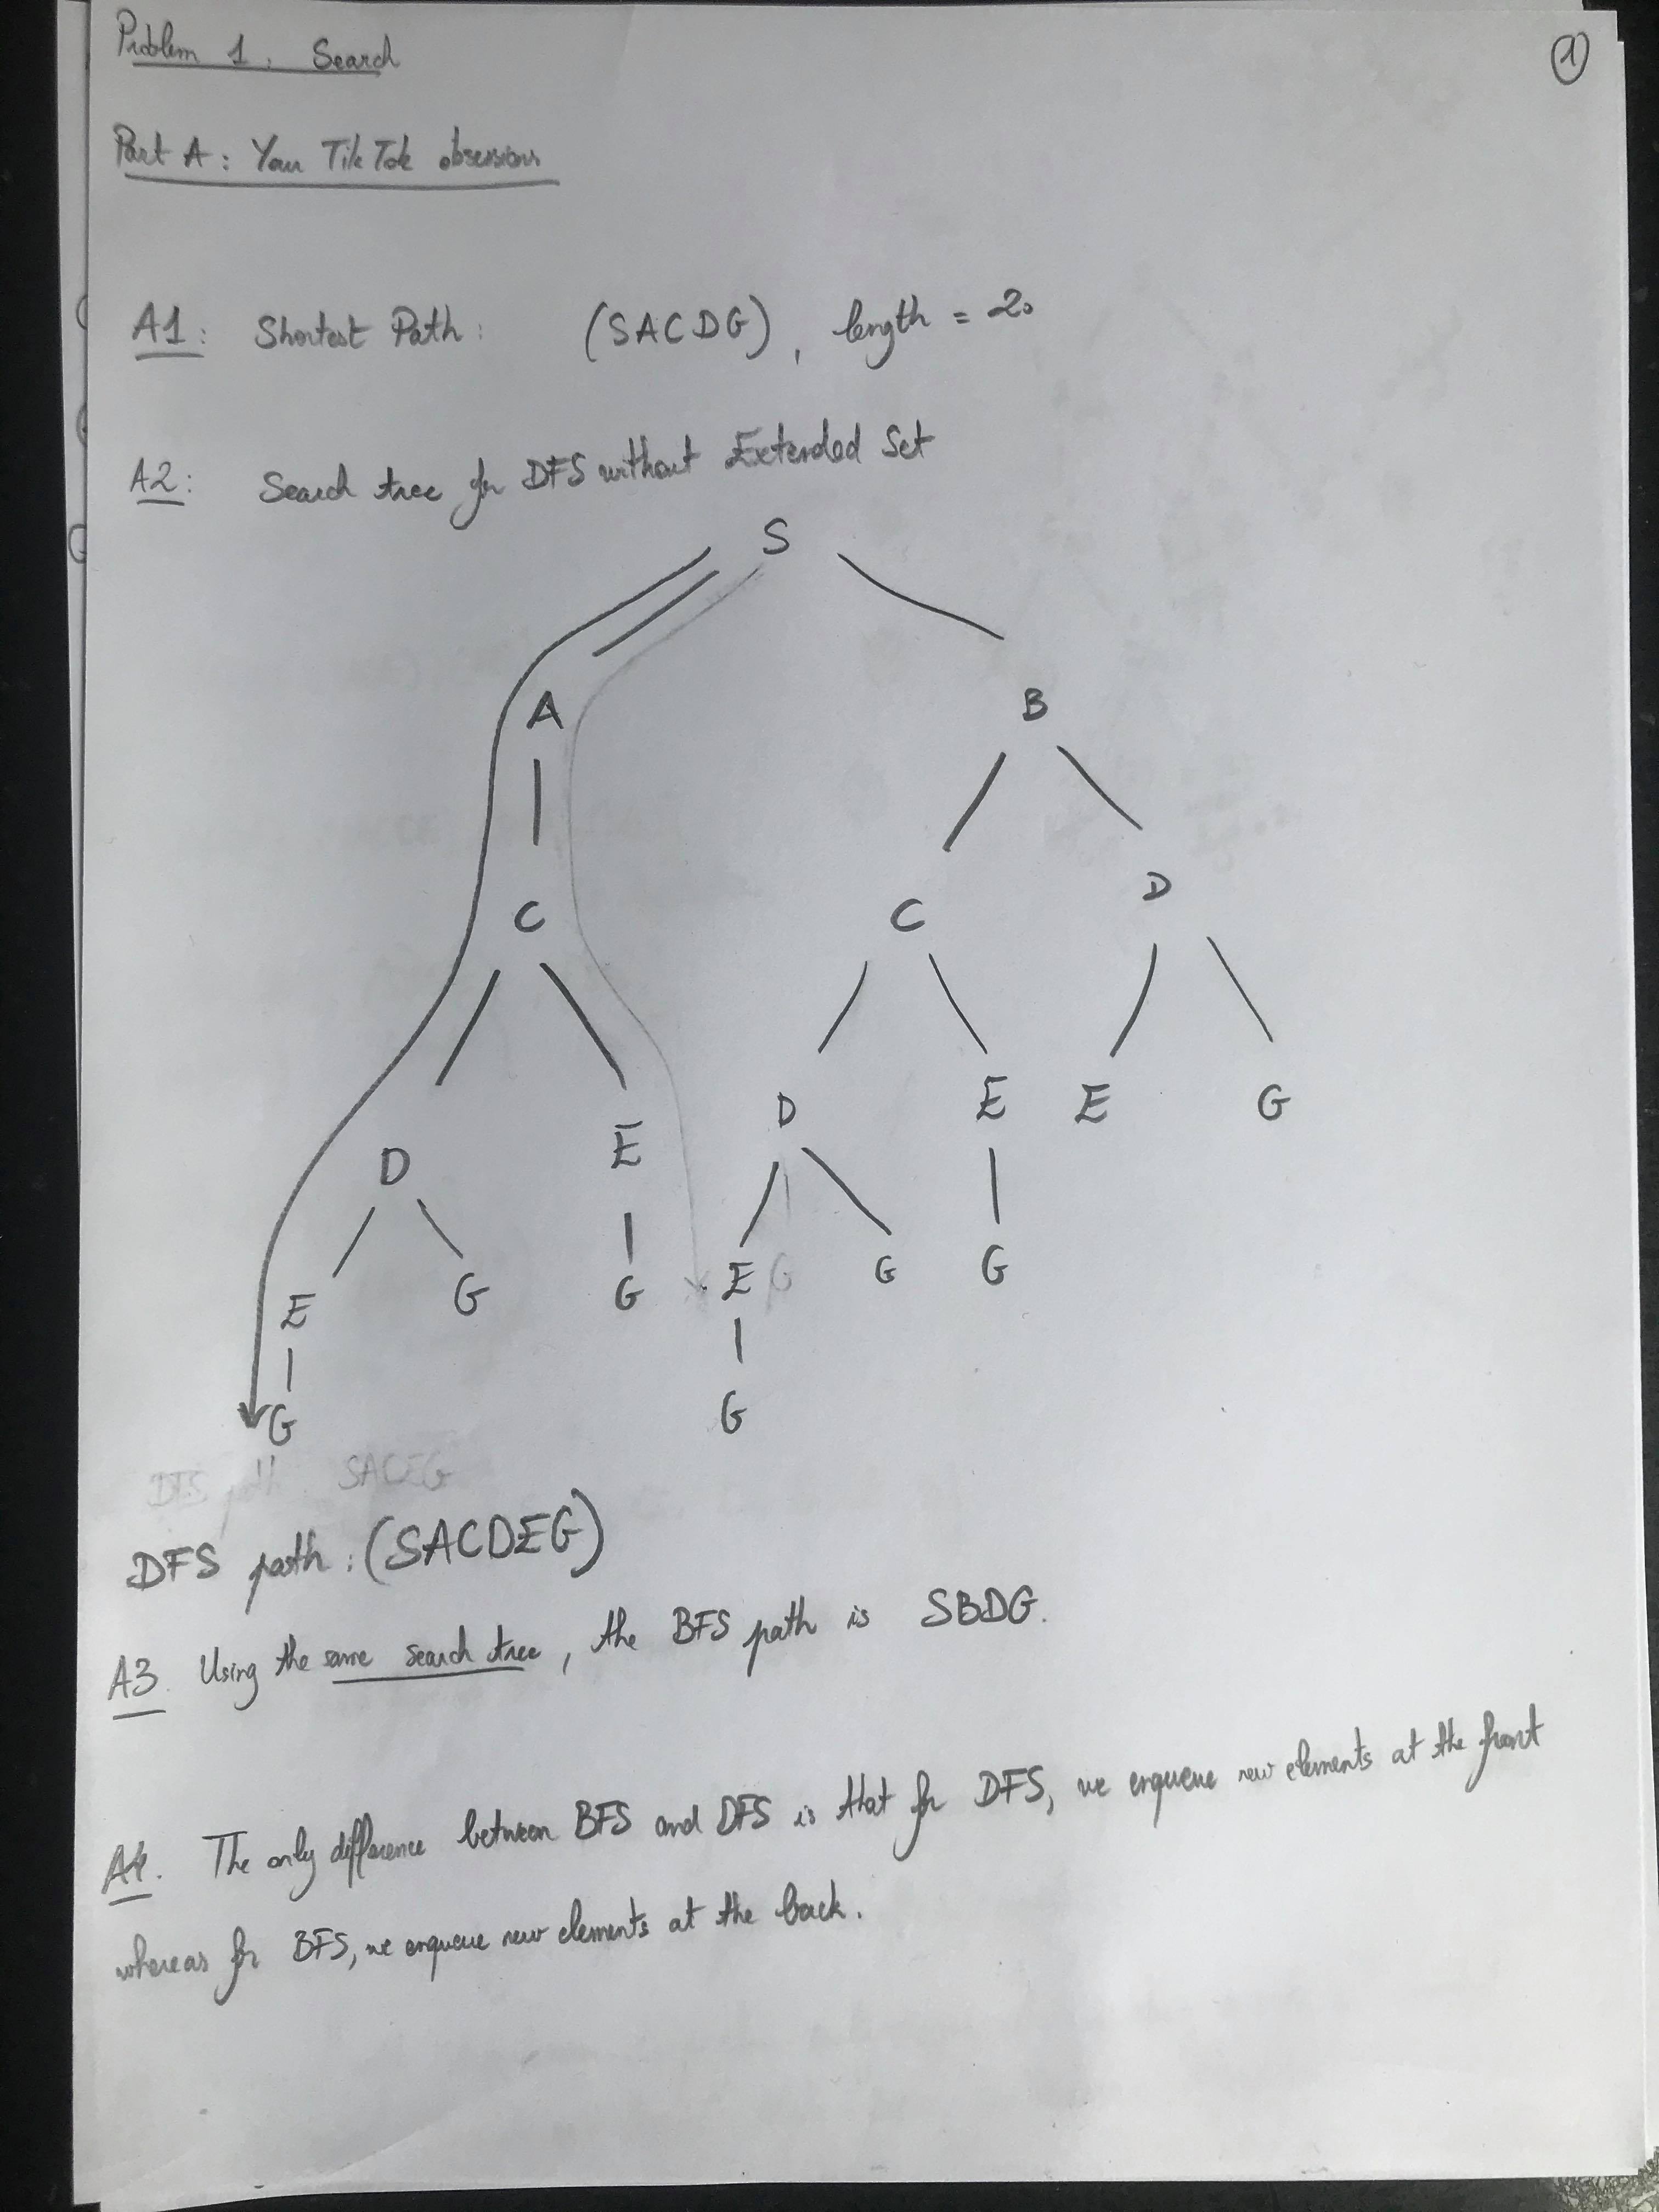 Problem 1: Search
1
Part A: Your TikTok obsession
A1: Shortest Path: (SACDG), length = 20
A2: Search tree for DFS without Extended Set
S
A B
C C D
D E D E E G
E G G E G G G
G G
DFS path SACEG
DFS path: (SACDEG)
A3. Using the same search tree, the BFS path is SBDG.
A4. The only difference between BFS and DFS is that for DFS, we enqueue new elements at the front
whereas for BFS, we enqueue new elements at the back.